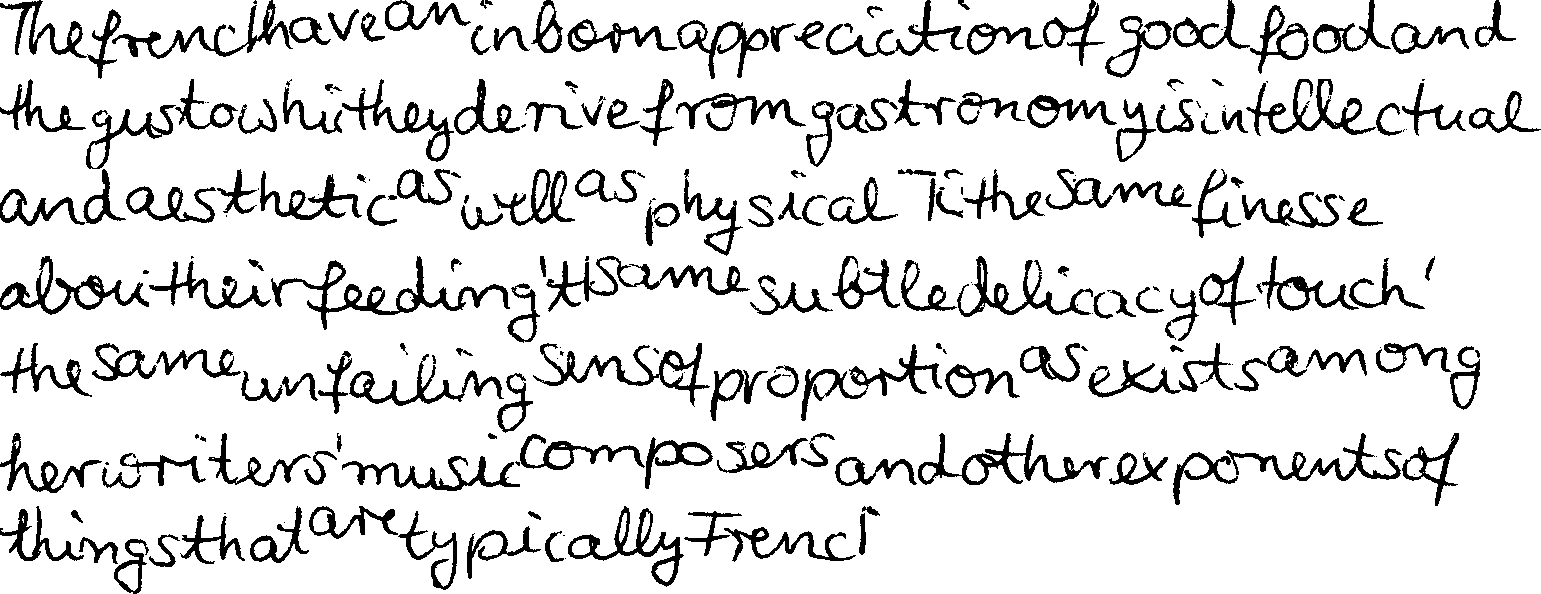 The french have an inborn appreciation of good food and
the gusto which they derive from gastronomy is intellectual
and aesthetic as well as physical the same finesse
about their feeding ' the same subtle delicacy of touch '
the same unfailing sens of proportion as exists among
her writers ' music composers and other exponents of
things that are typically French